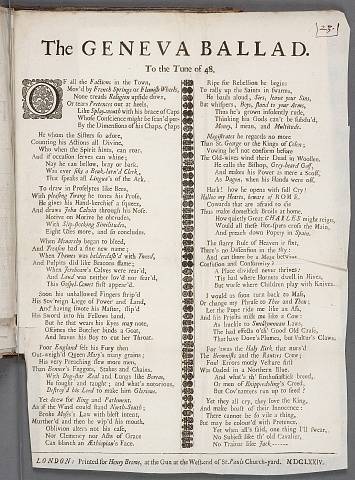 [25.]
The GENEVA BALLAD.
To the Tune of 48.
OF all the Factions in the Town,
Mov'd by French Springs or Flemish Wheels,
None treads Religion upside down,
Or tears Pretences out at heels,
Like Splay-mouth with his brace of Caps
Whose Conscience might be scan'd per-
By the Dimensions of his Chaps. (haps
He whom the Sisters so adore,
Counting his Actions all Divine,
Who when the Spirit hints, can roar,
And if occasion serves can whine;
Nay he can bellow, bray or bark.
Was ever like a
That speaks all Lingua's of the Ark.
To draw in Proselytes like Bees,
With pleasing Twang he tones his Prose,
He gives his Hand-kerchief a squeez,
And draws John Calvin through his Nose.
Motive on Motive he obtrudes,
With Slip-stocking Similitudes,
Eight Uses more, and so concludes.
When Monarchy began to bleed,
And Treason had a fine new name;
When Thames was balderdash'd with Tweed,
And Pulpits did like Beacons flame;
When Jeroboam's Calves were rear'd,
And Laud was neither lov'd nor fear'd,
This Gospel-Comet first appear'd.
Soon his unhallowed Fingers strip'd
His Sov'reign Liege of Power and Land,
And having smote his Master, slip'd
His Sword into his Fellows hand.
But he that wears his Eyes may note,
Oft-times the Butcher binds a Goat,
And leaves his Boy to cut her Throat.
Poor England felt his Fury then
Out-weigh'd Queen Mary's many grains;
His very Preaching slew more men,
Than Bonner's Faggots, Stakes and Chains.
With Dog-star Zeal and Lungs like Boreas,
He fought and taught; and what's notorious,
Destroy'd his Lord to make him Glorious.
Yet drew for King and Parliament,
As if the Wind could stand North-South;
Broke Moses's Law with blest intent,
Murther'd and then he wip'd his mouth.
Oblivion alters not his case,
Nor Clemency nor Acts of Grace
Can blanch an Æthiopian's Face.
Ripe for Rebellion he begins
To rally up the Saints in swarms,
He bawls aloud, Sirs, leave your Sins,
But whispers, Boys, stand to your Arms,
Thus he's grown insolently rude,
Thinking his Gods can't be subdu'd,
Money, I mean, and Multitude.
Magistrates he regards no more
Than St. George or the Kings of Colen;
Vowing he'll not conform before
The Old-wives wind their Dead in Woollen.
He calls the Bishop, Grey-hair'd Coff,
And makes his Power as mere a Scoff,
As Dagon, when his Hands were off.
Hark! how he opens with full Cry!
Hallow my Hearts, beware of ROME.
Cowards that are afraid to die
Thus make domestick Broils at home.
How quietly Great CHARLES might reign,
Would all these Hot-spurs cross the Main,
And preach down Popery in Spain.
The starry Rule of Heaven is fixt,
There's no Dissension in the Sky:
And can there be a Mean betwixt
Confusion and Conformity?
A Place divided never thrives:
'Tis bad where Hornets dwell in Hives,
But worse where Children play with Knives.
I would as soon turn back to Mass,
Or change my Phrase to Thee and Thou;
Let the Pope ride me like an Ass,
And his Priests milk me like a Cow:
As buckle to Smectymnuan Laws,
The bad effects o'th' Good Old Cause,
That have Dove's Plumes, but Vultur's Claws.
For 'twas the Holy Kirk that nurs'd
The Brownists and the Ranters Crew;
Foul Errors motly Vesture first
Was Oaded in a Northern Blue.
And what's th' Enthusiastick breed,
Or men of Knipperdoling's Creed,
But Cov'nanters run up to seed?
Yet they all cry, they love the King,
And make boast of their Innocence:
There cannot be so vile a thing,
But may be colour'd with Pretence.
Yet when all's said, one thing I'll swear,
No Subject like th' old Cavalier,
No Traitor like Jack
LONDON: Printed for Henry Brome, at the Gun at the West-end of St. Pauls Church-yard. MDCLXXIV.